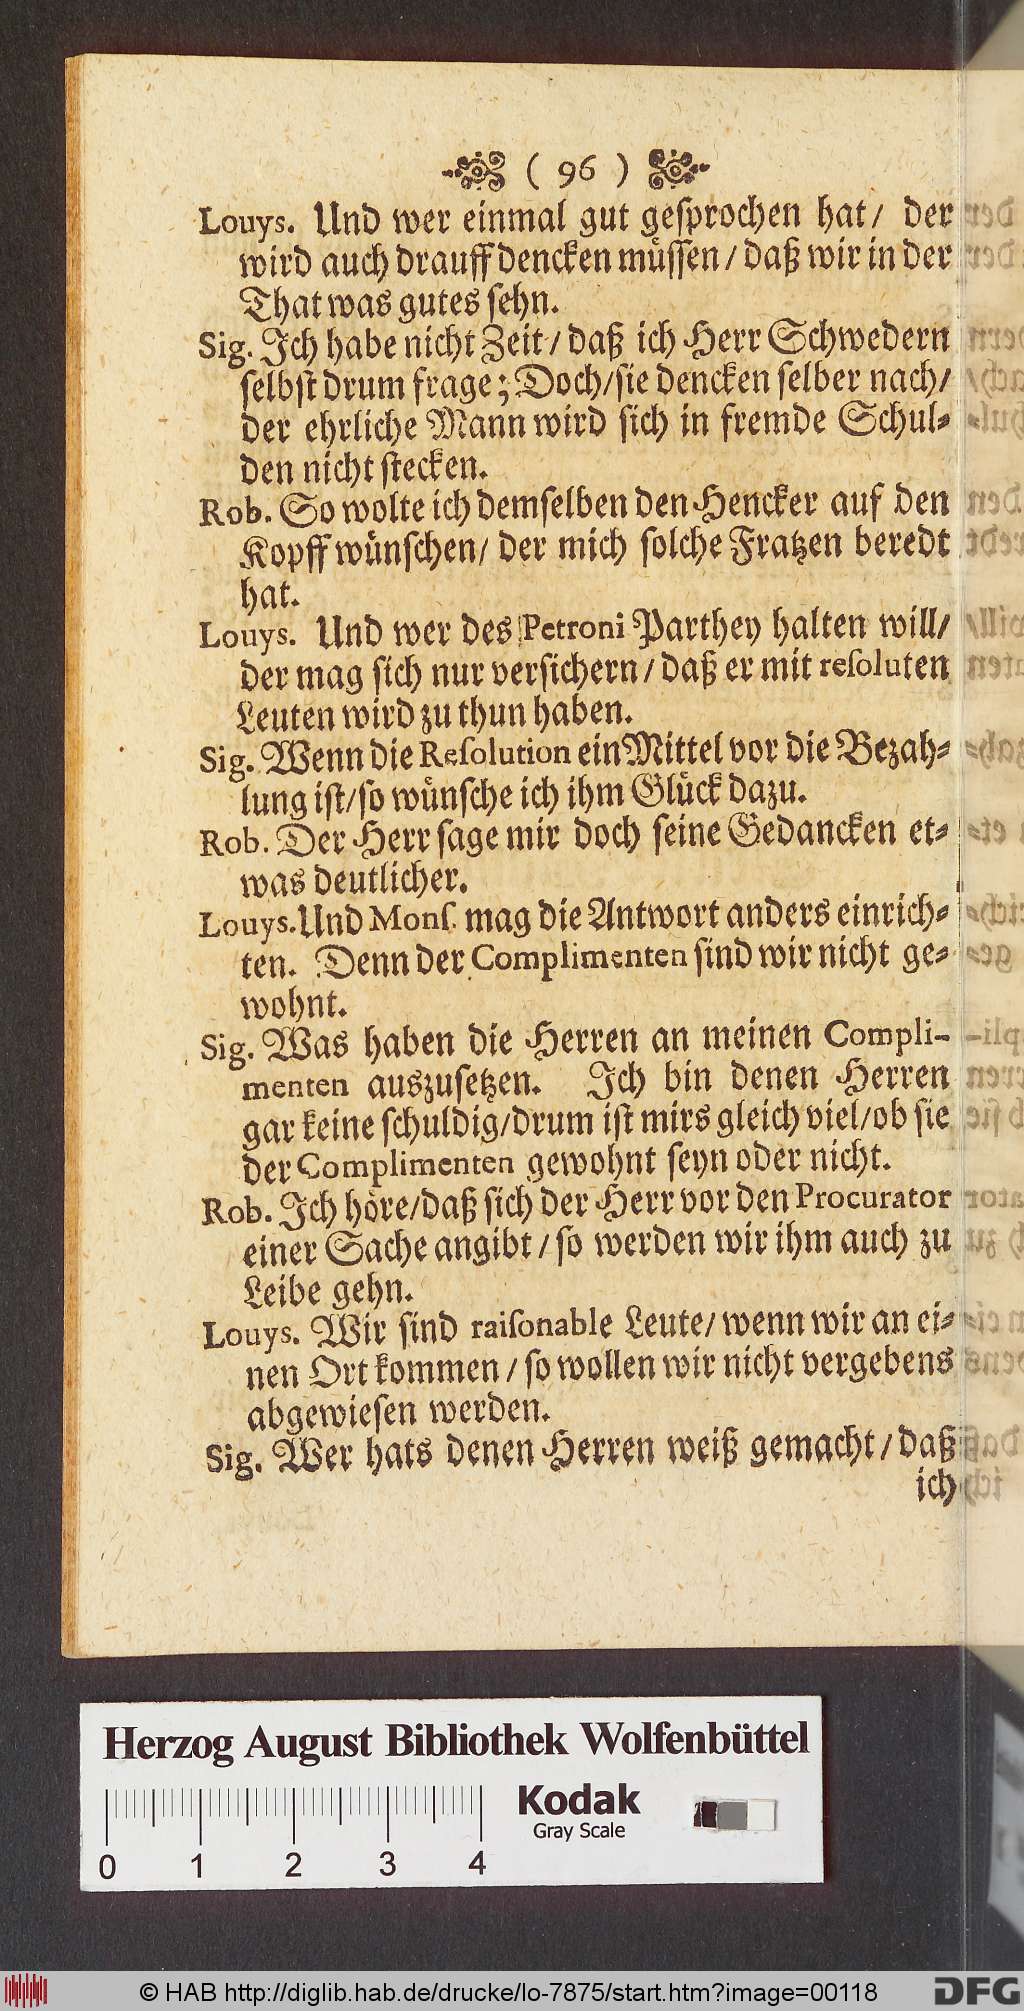 ( 96 )
Louys. Und wer einmal gut gesprochen hat/ der
wird auch drauff dencken müssen/ daß wir in der
That was gutes sehn.
Sig. Ich habe nicht Zeit/ daß ich Herr Schwedern
selbst drum frage; Doch/sie dencken selber nach/
der ehrliche Mann wird sich in fremde Schul-
den nicht stecken.
Rob. So wolte ich demselben den Hencker auf den
Kopff wünschen/ der mich solche Fratzen beredt
hat.
Louys. Und wer des Petroni Parthey halten will/
der mag sich nur versichern/ daß er mit resoluten
Leuten wird zu thun haben.
Sig. Wenn die Resolution ein Mittel vor die Bezah-
lung ist/so wünsche ich ihm Glück dazu.
Rob. Der Herr sage mir doch seine Gedancken et-
was deutlicher.
Louys. Und Mons. mag die Antwort anders einrich-
ten. Denn der Complimenten sind wir nicht ge-
wohnt.
Sig. Was haben die Herren an meinen Compli-
menten auszusetzen. Ich bin denen Herren
gar keine schuldig/drum ist mirs gleich viel/ob sie
der Complimenten gewohnt seyn oder nicht.
Rob. Ich höre/daß sich der Herr vor den Procurator
einer Sache angibt/ so werden wir ihm auch zu
Leibe gehn.
Louys. Wir sind raisonable Leute/ wenn wir an ei-
nen Ort kommen/ so wollen wir nicht vergebens
abgewiesen werden.
Sig. Wer hats denen Herren weiß gemacht/ daß
ich
Herzog August Bibliothek Wolfenbüttel
Kodak
Gray Scale
0 1 2 3 4
© HAB http://diglib.hab.de/drucke/lo-7875/start.htm?image=00118
DFG